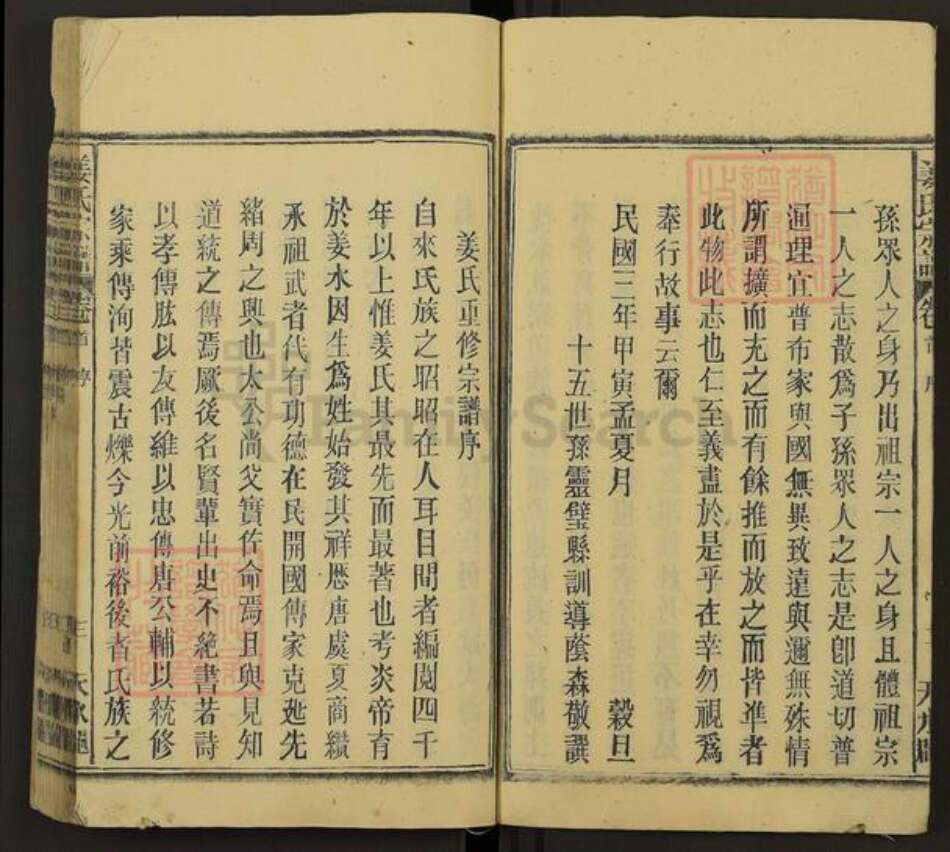 孫眾人之身乃出祖宗一人之身且體祖宗
一人之志散爲子孫眾人之志是卽道切普
通理宜普布家與國無異致遠與邇無殊情
所謂擴而充之而有餘推而放之而皆准者
此物此志也仁至義盡於是乎在幸勿視爲
奉行故事云爾
民國三年甲寅孟夏月 穀旦
十五世孫靈璧縣訓導蔭森敬譔
姜氏宗譜 卷首 序
姜氏重修宗譜序
自來氏族之昭昭在人耳目間者編閱四千
年以上惟姜氏其最先而最著也考炎帝育
於姜水因生爲姓始發其祥歷唐虞夏商纘
承祖武者代有功德在民開國傳家克迆先
緒周之興也太公尚父實佐命焉且與見知
道統之傳焉厥後名賢輩出史不絕書若詩
以孝傳肱以友傳維以忠傳唐公輔以統修
家乘傳洵皆震古爍今光前裕後者氏族之
姜氏宗譜 卷首 序 三
FamilySearch